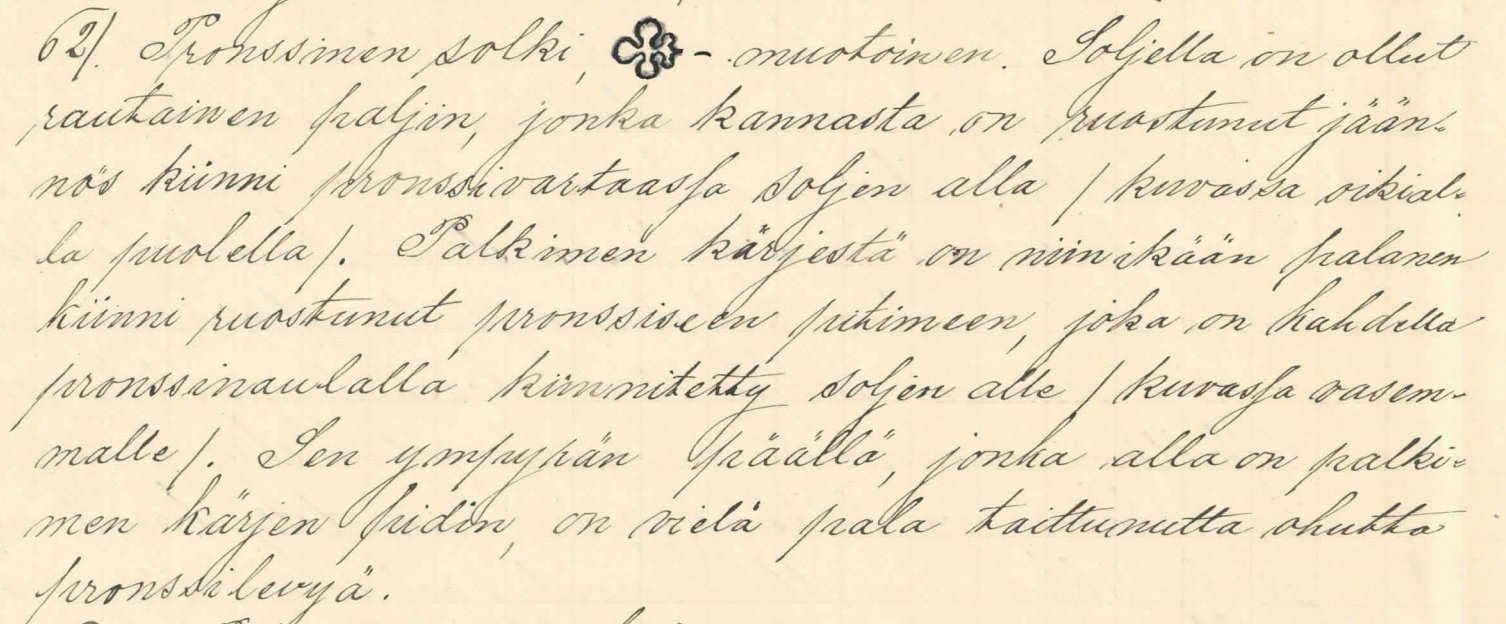 62/. Pronssinen solki, - muotoinen. Soljella on ollut
rautainen paljin, jonka kannasta on ruostunut jään-
nös kiinni pronssivartaassa soljen alla / kuvassa oikial-
la puolella /. Palkimen kärjestä on niinikään palanen
kiinni ruostunut pronssiseen pitimeen, joka on kahdella
pronssinaulalla kiinnitetty soljen alle / kuvassa vasem-
malle /. Sen ympyrän päällä, jonka alla on palki-
men kärjen pidin, on vielä pala taittunutta ohutta
pronssilevyä.